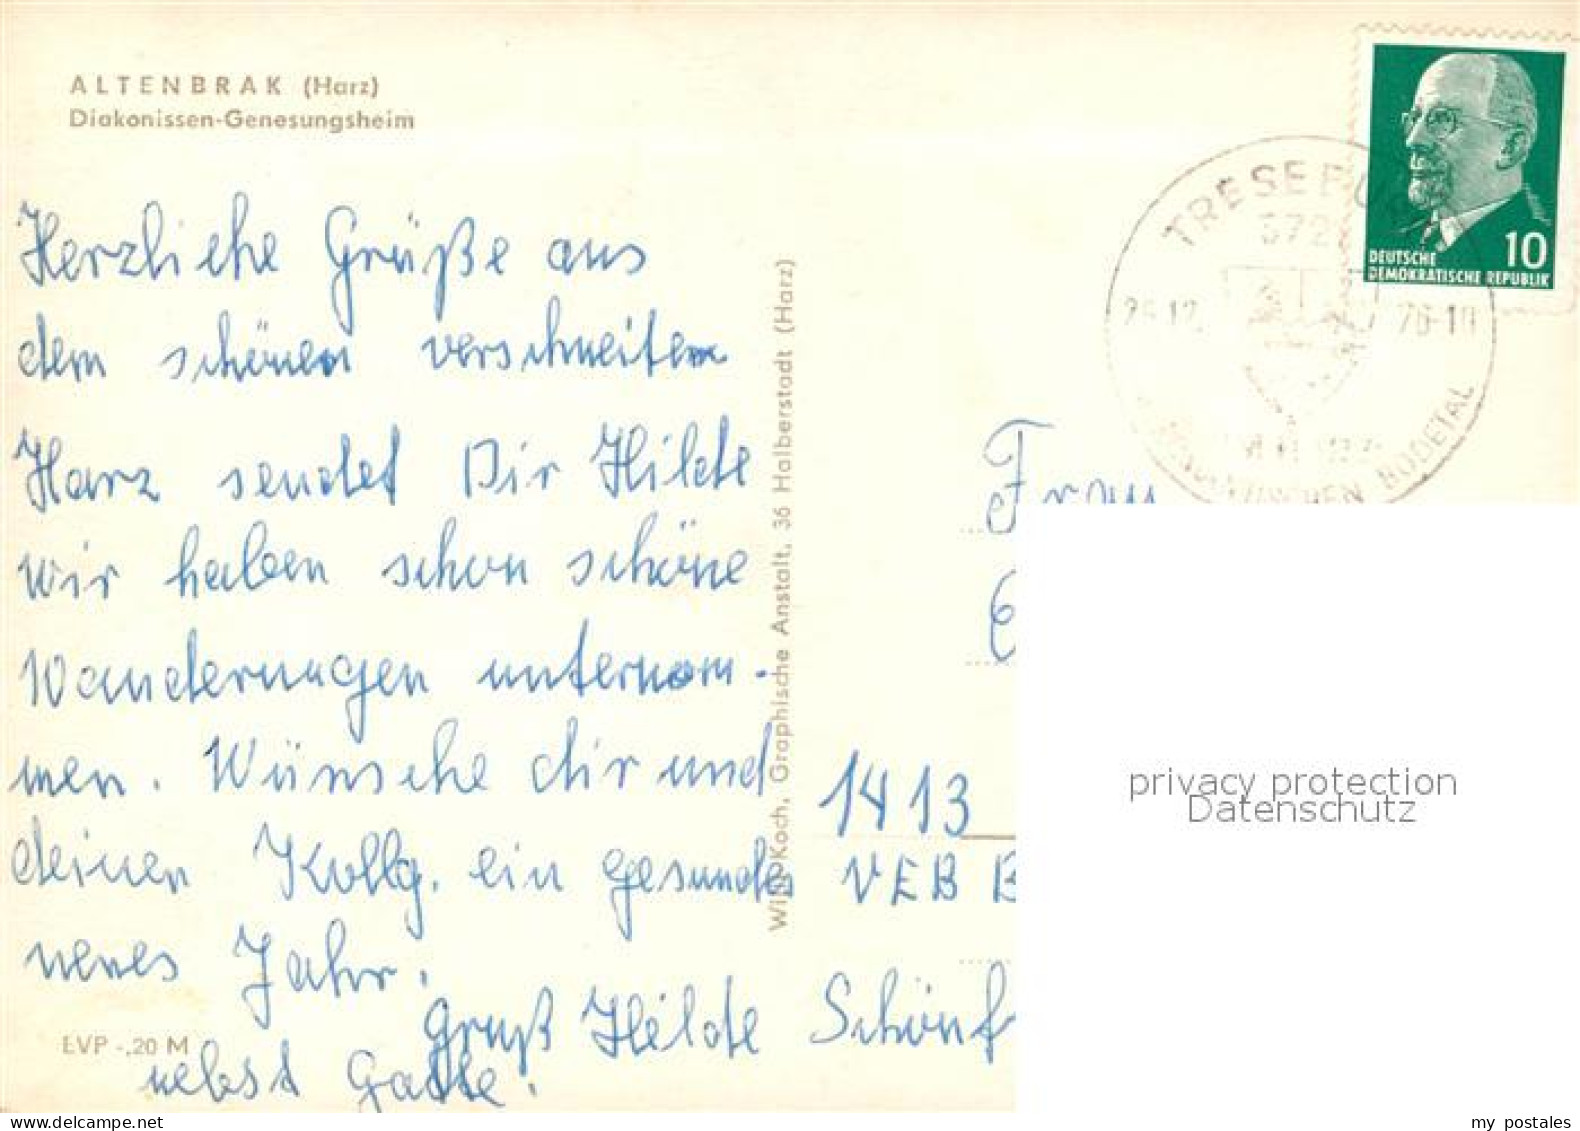 ALTENBRAK (Harz)
Diakonissen-Genesungsheim
Herzliche Grüße aus
dem schönen verschneiten
Harz sendet Dir Hilde
Wir haben schon schöne
Wanderungen unternom-
men. Wünsche dir und
deinen Kollg. ein gesundes
neues Jahr.
Gruß Hilde
nebst Gatte.
EVP -,20 M
Willi Koch, Graphische Anstalt, 36 Halberstadt (Harz)
DEUTSCHE
DEMOKRATISCHE REPUBLIK
10
372
BODETAL
Frau
1413
VEB B
Schönf
privacy protection
Datenschutz
my postales
www.delcampe.net